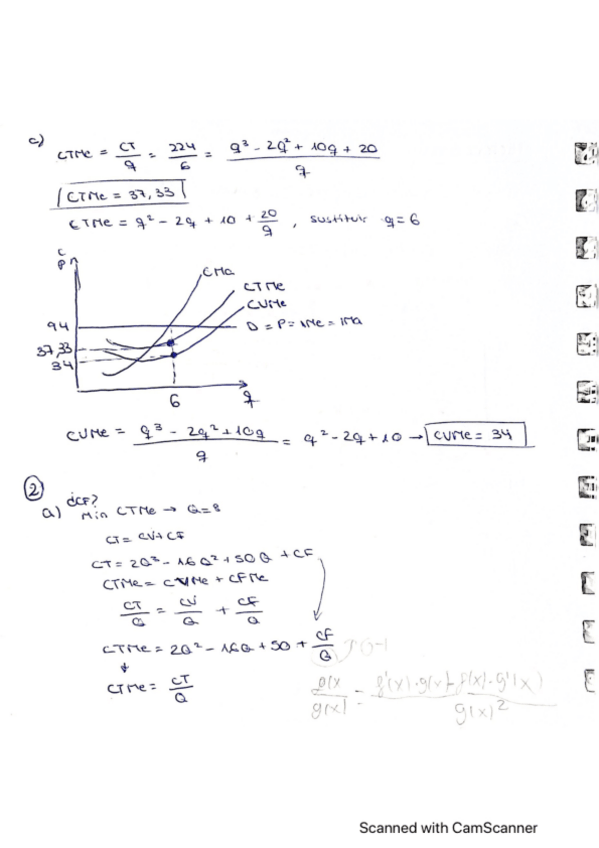 c)
CTMe = CT/q = 224/6 = q³ - 2q² + 10q + 20 / q
CTMe = 37,33
CTMe = q² - 2q + 10 + 20/q , sustituir q = 6
C
P
CMa
CTMe
CVMe
94
D = P = IMe = IMa
37,33
34
6
q
CVMe = q³ - 2q² + 10q / q = q² - 2q + 10 → CVMe = 34
②
a) ¿CF?
Min CTMe → Q = 8
CT = CV + CF
CT = 2Q³ - 16Q² + 50Q + CF
CTMe = CVMe + CFMe
CT/Q = CV/Q + CF/Q
CTMe = 2Q² - 16Q + 50 + CF/Q
CTMe = CT/Q
g(x) = f'(x)·g(x) - f(x)·g'(x) / g(x)²
Scanned with CamScanner